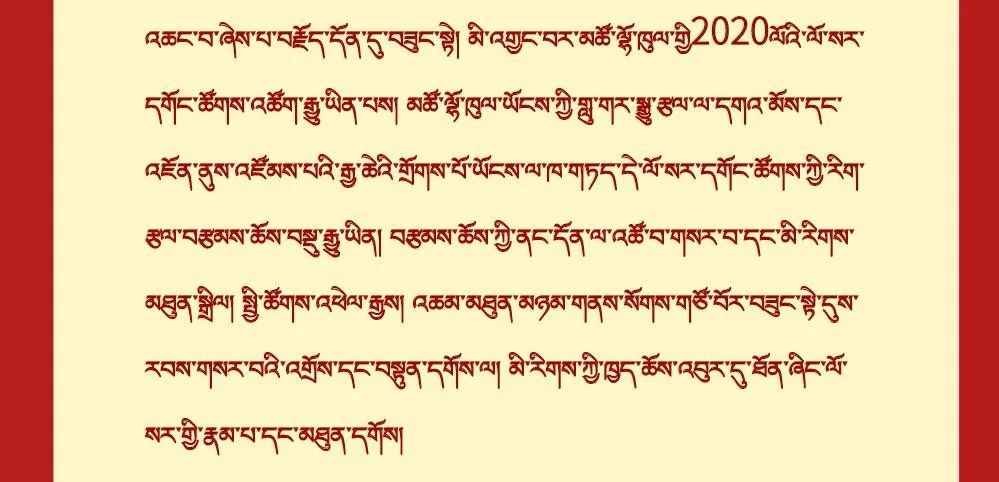 འཆང་བ་ཞེས་པ་བརྗོད་དོན་དུ་བཟུང་སྟེ། མི་འགྱང་བར་མཚོ་ལྷོ་ཁུལ་གྱི2020ལོའི་ལོ་སར་
དགོང་ཚོགས་འཚོག་རྒྱུ་ཡིན་པས། མཚོ་ལྷོ་ཁུལ་ཡོངས་ཀྱི་གླུ་གར་སྒྱུ་རྩལ་ལ་དགའ་མོས་དང་
འཇོན་ནུས་འཛོམས་པའི་རྒྱ་ཆེའི་གྲོགས་པོ་ཡོངས་ལ་ཁ་གཏད་དེ་ལོ་སར་དགོང་ཚོགས་ཀྱི་རིག་
རྩལ་བརྩམས་ཆོས་བསྡུ་རྒྱུ་ཡིན། བརྩམས་ཆོས་ཀྱི་ནང་དོན་ལ་འཚོ་བ་གསར་བ་དང་མི་རིགས་
མཐུན་སྒྲིལ། སྤྱི་ཚོགས་འཕེལ་རྒྱས། འཆམ་མཐུན་མཉམ་གནས་སོགས་གཙོ་བོར་བཟུང་སྟེ་དུས་
རབས་གསར་བའི་འགྲོས་དང་བསྟུན་དགོས་ལ། མི་རིགས་ཀྱི་ཁྱད་ཆོས་འབུར་དུ་ཐོན་ཞིང་ལོ་
སར་གྱི་རྣམ་པ་དང་མཐུན་དགོས།